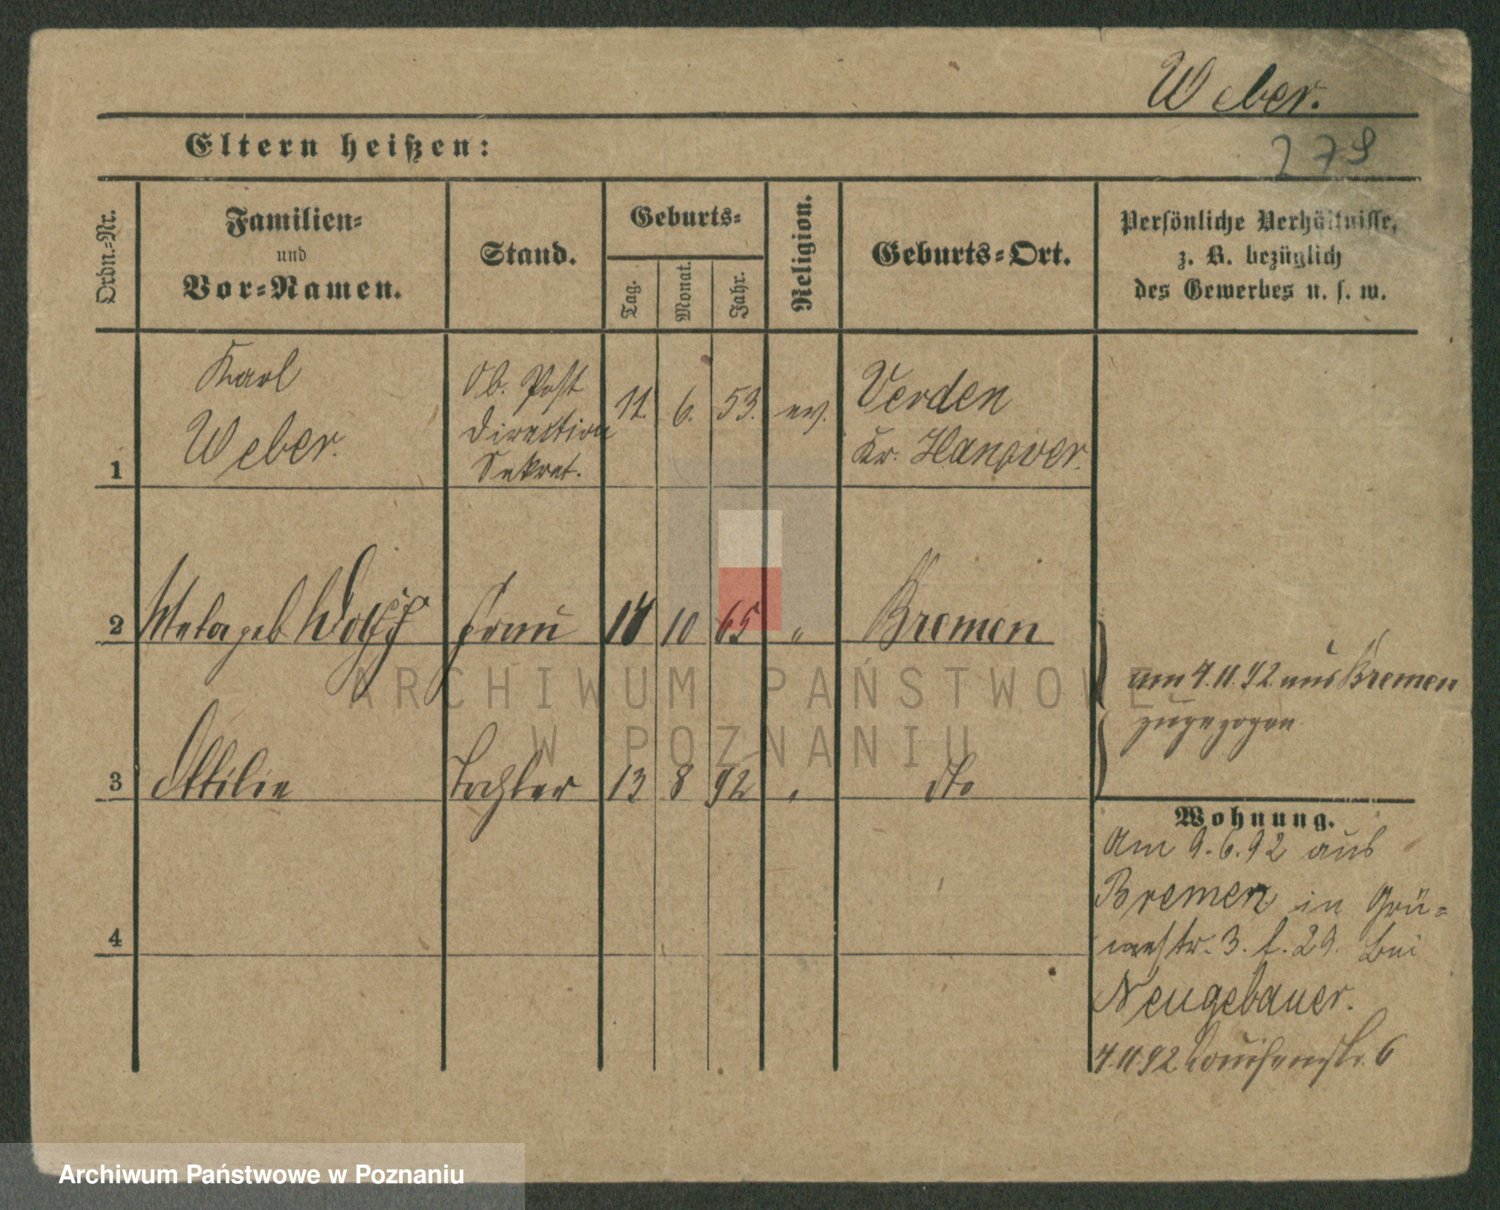 Weber.
Eltern heißen:
279
Ordn.-Nr.
Familien-
und
Vor-Namen.
Stand.
Geburts-
Tag.
Monat.
Jahr.
Religion.
Geburts-Ort.
Persönliche Verhältnisse,
z. B. bezüglich
des Gewerbes u. s. w.
1
Karl
Weber.
Ob. Post
Direktion
Sekret.
11. 6. 53. ev.
Verden
Kr. Hanover.
2 Meta geb Wolff Frau 10 65 " Bremen
am 4.11.92 aus Bremen
zugezogen
3 Ottilie Tochter 13 8 92 " dto
Wohnung.
Am 9.6.92 aus
Bremen in Grü-
nestr. 3. f. 29. bei
Neugebauer.
4.11.92 Louisenstr. 6
4
ARCHIWUM PAŃSTWOWE
W POZNANIU
Archiwum Państwowe w Poznaniu